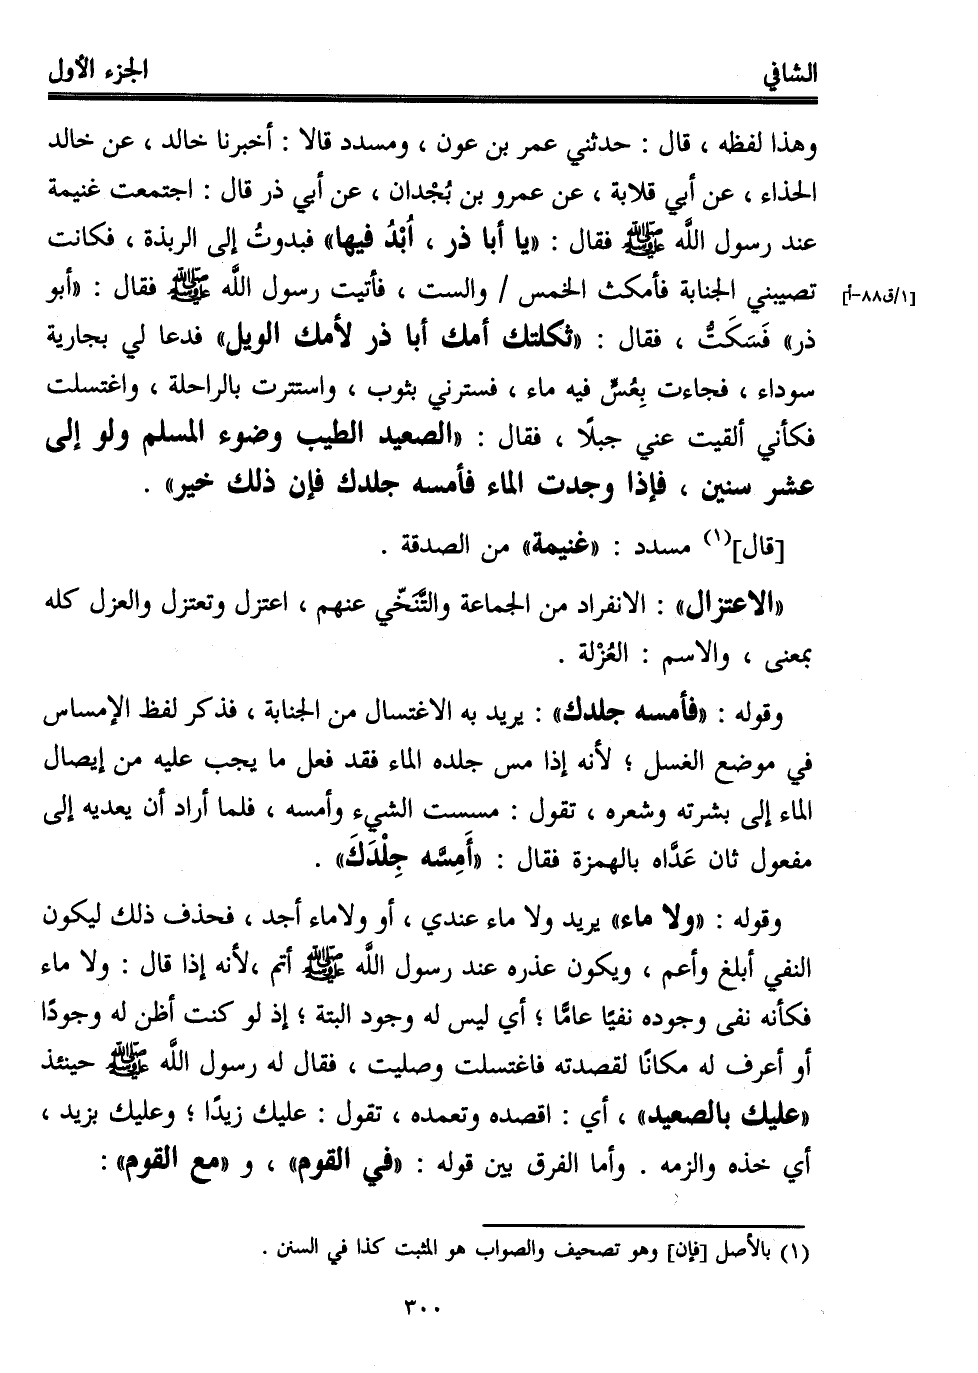 الشافي
الجزء الأول
وهذا لفظه ، قال : حدثني عمر بن عون ، ومسدد قالا : أخبرنا خالد ، عن خالد
الحذاء ، عن أبي قلابة ، عن عمرو بن بُجْدان ، عن أبي ذر قال : اجتمعت غنيمة
عند رسول اللَّه ﷺ فقال : «يا أبا ذر ، أُبْدُ فيها» فبدوتُ إلى الربذة ، فكانت
تصيبني الجنابة فأمكث الخمس / والست ، فأتيت رسول اللَّه ﷺ فقال : «أبو
[١/ق٨٨-أ]
ذر» فَسَكَتُّ ، فقال : «ثكلتك أمك أبا ذر لأمك الويل» فدعا لي بجارية
سوداء ، فجاءت بِعُسٍّ فيه ماء ، فسترني بثوب ، واستترت بالراحلة ، واغتسلت
فكأني ألقيت عني جبلًا ، فقال : «الصعيد الطيب وضوء المسلم ولو إلى
عشر سنين ، فإذا وجدت الماء فأمسه جلدك فإن ذلك خير» .
[قال](١) مسدد : «غنيمة» من الصدقة .
«الاعتزال» : الانفراد من الجماعة والتَّنَحّي عنهم ، اعتزل وتعتزل والعزل كله
بمعنى ، والاسم : العُزْلة .
وقوله : «فأمسه جلدك» : يريد به الاغتسال من الجنابة ، فذكر لفظ الإمساس
في موضع الغسل ؛ لأنه إذا مس جلده الماء فقد فعل ما يجب عليه من إيصال
الماء إلى بشرته وشعره ، تقول : مسست الشيء وأمسه ، فلما أراد أن يعديه إلى
مفعول ثان عَدَّاه بالهمزة فقال : «أَمِسَّه جِلْدَكَ» .
وقوله : «ولا ماء» يريد ولا ماء عندي ، أو ولاماء أجد ، فحذف ذلك ليكون
النفي أبلغ وأعم ، ويكون عذره عند رسول اللَّه ﷺ أتم ،لأنه إذا قال : ولا ماء
فكأنه نفى وجوده نفيًا عامًّا ؛ أي ليس له وجود البتة ؛ إذ لو كنت أظن له وجودًا
أو أعرف له مكانًا لقصدته فاغتسلت وصليت ، فقال له رسول اللَّه ﷺ حينئذ
«عليك بالصعيد» ، أي : اقصده وتعمده ، تقول : عليك زيدًا ؛ وعليك بزيد ،
أي خذه والزمه . وأما الفرق بين قوله : «في القوم» ، و «مع القوم» :
(١) بالأصل [فإن] وهو تصحيف والصواب هو المثبت كذا في السنن .
٣٠٠